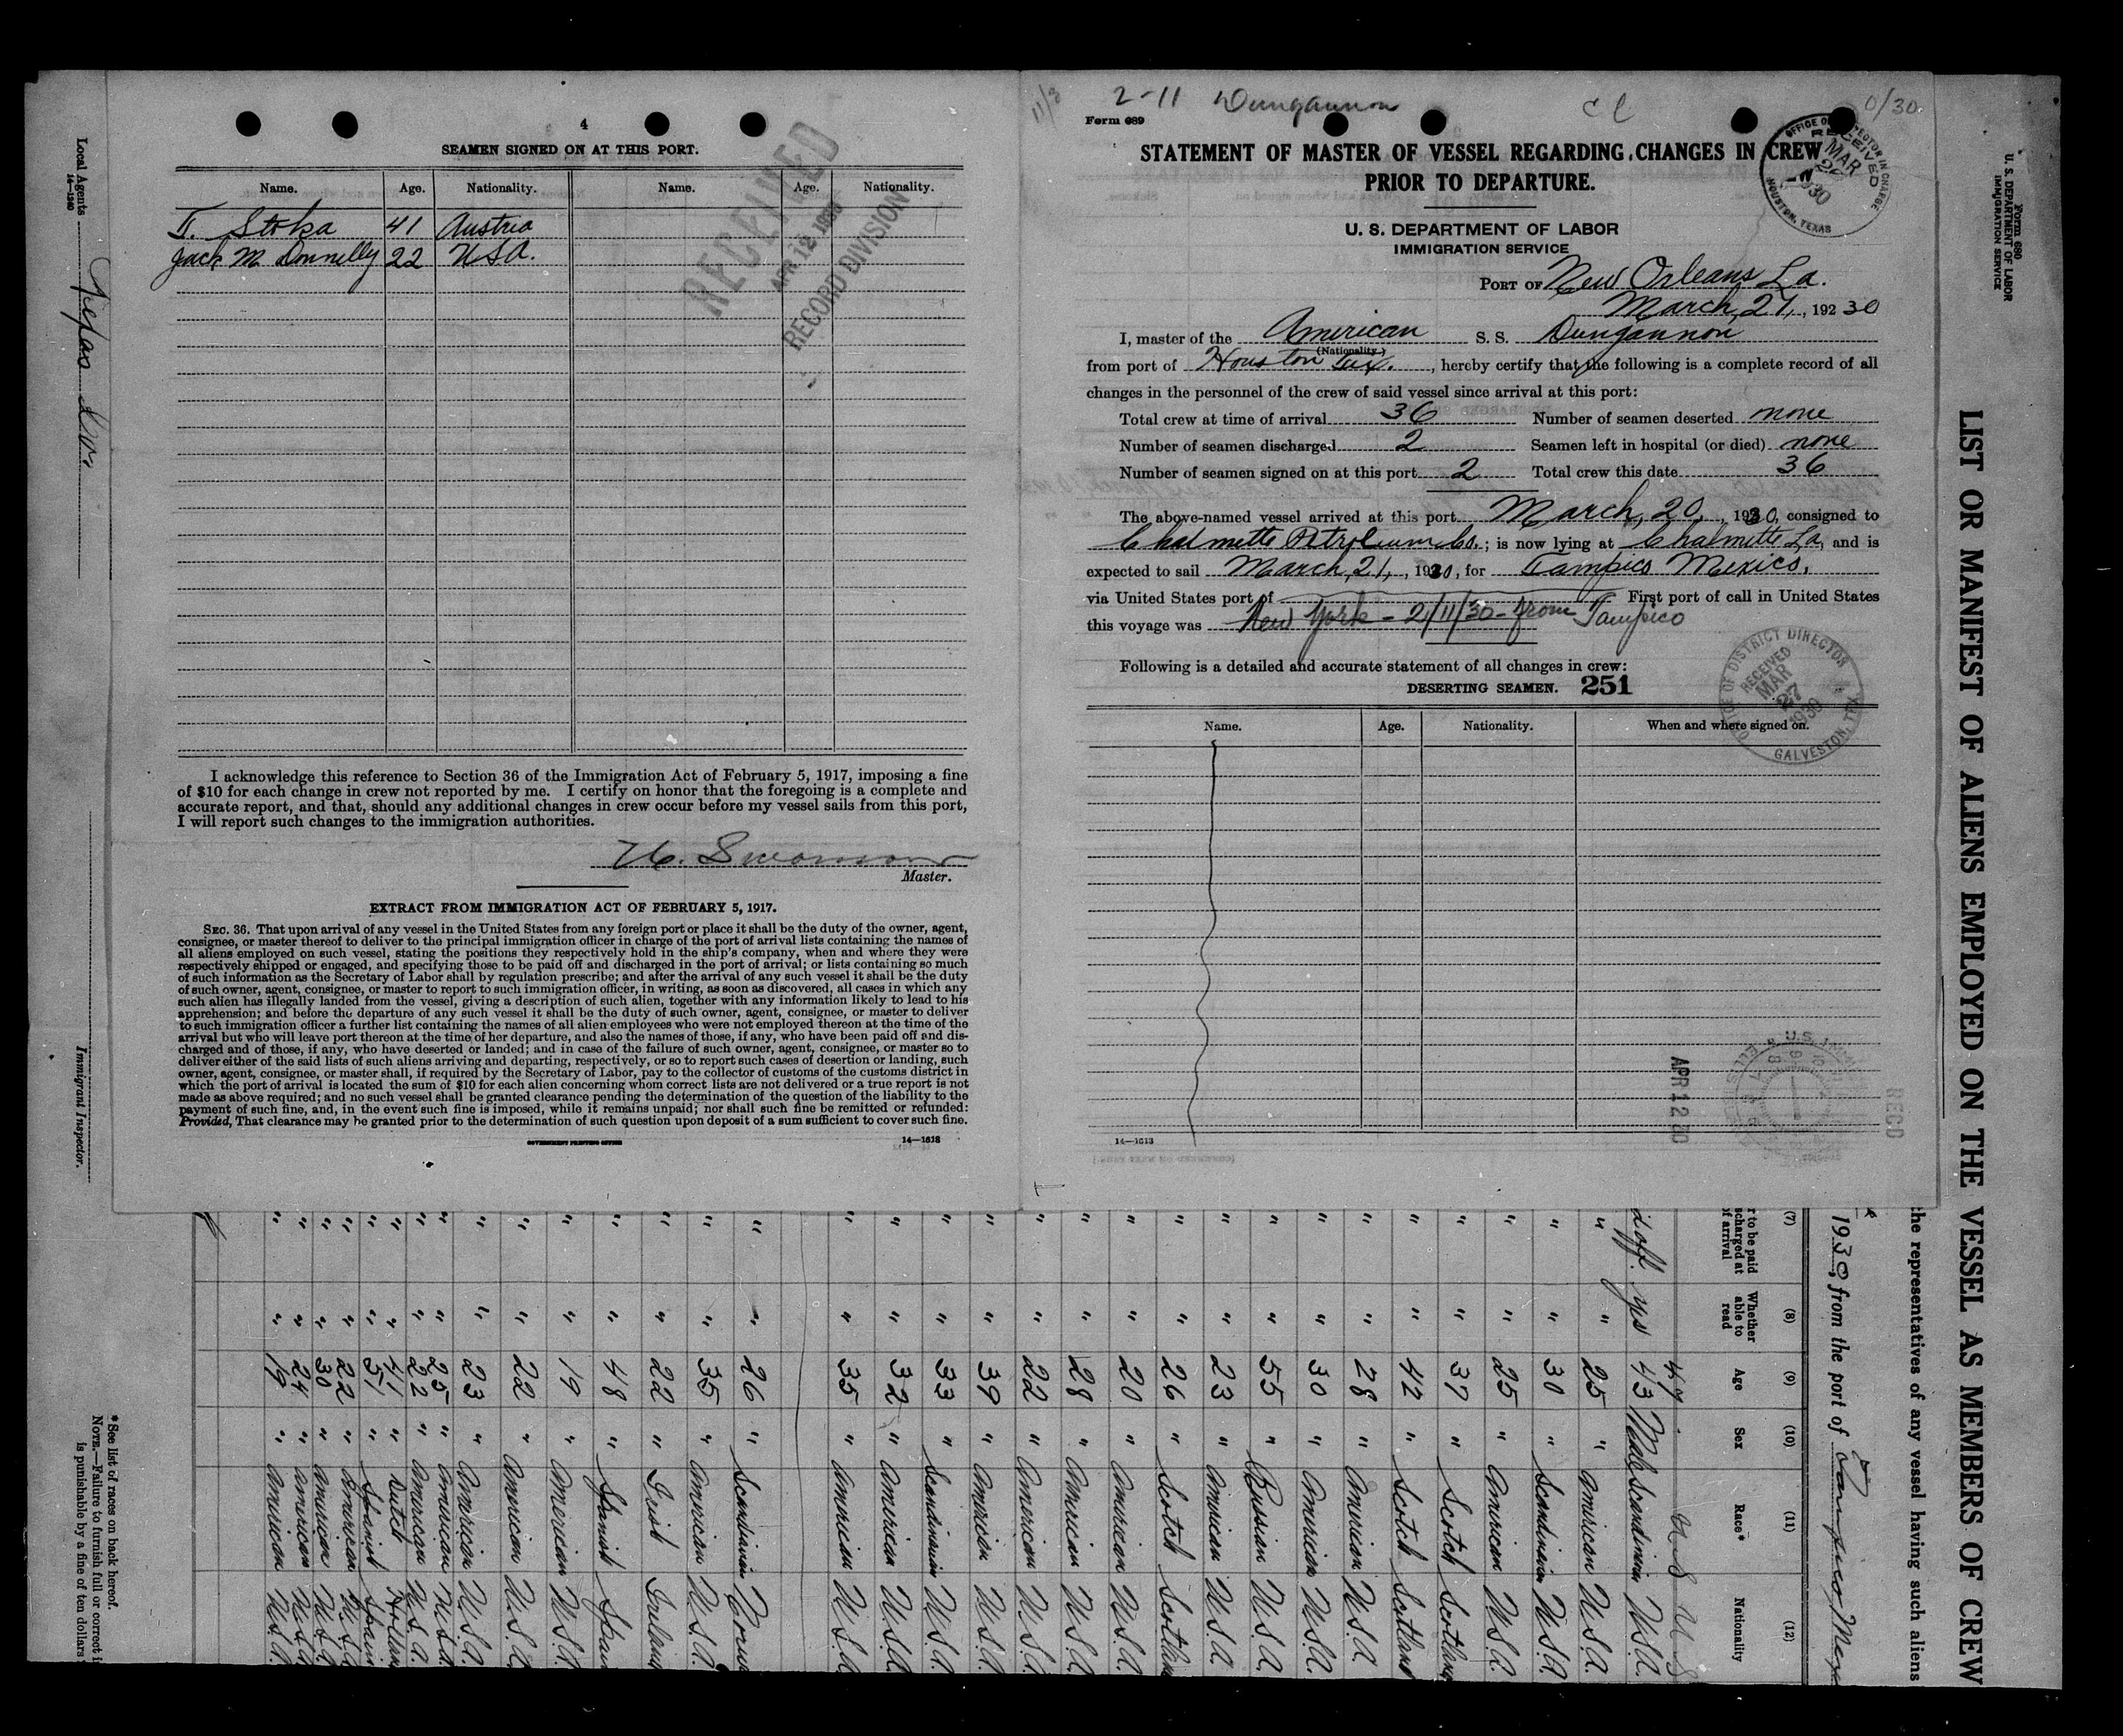 4
SEAMEN SIGNED ON AT THIS PORT.
Name. Age. Nationality. Name. Age. Nationality.
Stoka 41 Austria
Jack M Donnelly 22 U.S.A.
RECEIVED
APR 12 1930
RECORD DIVISION
I acknowledge this reference to Section 36 of the Immigration Act of February 5, 1917, imposing a fine
of $10 for each change in crew not reported by me. I certify on honor that the foregoing is a complete and
accurate report, and that, should any additional changes in crew occur before my vessel sails from this port,
I will report such changes to the immigration authorities.
Swanson
Master.
EXTRACT FROM IMMIGRATION ACT OF FEBRUARY 5, 1917.
SEC. 36. That upon arrival of any vessel in the United States from any foreign port or place it shall be the duty of the owner, agent,
consignee, or master thereof to deliver to the principal immigration officer in charge of the port of arrival lists containing the names of
all aliens employed on such vessel, stating the positions they respectively hold in the ship's company, when and where they were
respectively shipped or engaged, and specifying those to be paid off and discharged in the port of arrival; or lists containing so much
of such information as the Secretary of Labor shall by regulation prescribe; and after the arrival of any such vessel it shall be the duty
of such owner, agent, consignee, or master to report to such immigration officer, in writing, as soon as discovered, all cases in which any
such alien has illegally landed from the vessel, giving a description of such alien, together with any information likely to lead to his
apprehension; and before the departure of any such vessel it shall be the duty of such owner, agent, consignee, or master to deliver
to such immigration officer a further list containing the names of all alien employees who were not employed thereon at the time of the
arrival but who will leave port thereon at the time of her departure, and also the names of those, if any, who have been paid off and dis-
charged and of those, if any, who have deserted or landed; and in case of the failure of such owner, agent, consignee, or master so to
deliver either of the said lists of such aliens arriving and departing, respectively, or so to report such cases of desertion or landing, such
owner, agent, consignee, or master shall, if required by the Secretary of Labor, pay to the collector of customs of the customs district in
which the port of arrival is located the sum of $10 for each alien concerning whom correct lists are not delivered or a true report is not
made as above required; and no such vessel shall be granted clearance pending the determination of the question of the liability to the
payment of such fine, and, in the event such fine is imposed, while it remains unpaid; nor shall such fine be remitted or refunded:
Provided, That clearance may be granted prior to the determination of such question upon deposit of a sum sufficient to cover such fine.
GOVERNMENT PRINTING OFFICE 14—1613
11/3 2-11 Dungannon 0/30
Form 689
STATEMENT OF MASTER OF VESSEL REGARDING CHANGES IN CREW
PRIOR TO DEPARTURE.
RECEIVED
MAR
1930
HOUSTON, TEXAS
U. S. DEPARTMENT OF LABOR
IMMIGRATION SERVICE
PORT OF New Orleans La.
March 21, , 192 30
I, master of the American S. S. Dungannon
(Nationality.)
from port of Houston Tex. , hereby certify that the following is a complete record of all
changes in the personnel of the crew of said vessel since arrival at this port:
Total crew at time of arrival 36 Number of seamen deserted none
Number of seamen discharged 2 Seamen left in hospital (or died) none
Number of seamen signed on at this port 2 Total crew this date 36
The above-named vessel arrived at this port March, 20, , 1930, consigned to
Chalmette Petroleum Co. ; is now lying at Chalmette La, and is
expected to sail March, 21, , 1930, for Tampico Mexico.
via United States port of First port of call in United States
this voyage was New York - 2/11/30 - from Tampico
Following is a detailed and accurate statement of all changes in crew:
DESERTING SEAMEN. 251
OFFICE OF DISTRICT DIRECTOR
RECEIVED
MAR
27
1930
GALVESTON, TEX
Name. Age. Nationality. When and where signed on.
APR 12 30
RECD
14—1613
Local Agents
14—1240
Immigrant Inspector.
Form 680
U. S. DEPARTMENT OF LABOR
IMMIGRATION SERVICE
LIST OR MANIFEST OF ALIENS EMPLOYED ON THE VESSEL AS MEMBERS OF CREW
the representatives of any vessel having such aliens
1930, from the port of Tampico Mex
(7) (8) (9) (10) (11) (12)
r to be paid
scharged at
of arrival
Whether able to read Age Sex Race* Nationality
47 U S
d off. yes 43 Male Scandinavian U.S.A.
" " 25 " American U.S.A.
" " 30 " Scandinavian U.S.A.
" " 25 " American U.S.A.
" " 37 " Scotch Scotland
" " 42 " Scotch Scotland
" " 28 " American U.S.A.
" " 30 " American U.S.A.
" " 55 " Russian U.S.A.
" " 23 " American U.S.A.
" " 26 " Scotch Scotland
" " 20 " American U.S.A.
" " 28 " American U.S.A.
" " 22 " American U.S.A.
" " 39 " American U.S.A.
" " 33 " Scandinavian U.S.A.
" " 32 " American U.S.A.
" " 35 " American U.S.A.
" " 26 " Scandinavian Norw
" " 35 " American U.S.A.
" " 22 " Irish Ireland
" " 48 " Spanish Spain
" " 19 " American U.S.A.
" " 22 " American U.S.A.
" " 23 " American U.S.A.
" " 25 " American U.S.A.
" " 22 " American U.S.A.
" " 41 " Dutch Holland
" " 51 " Spanish Spain
" " 22 " American U.S.A.
" " 30 " American U.S.A.
" " 24 " American U.S.A.
" " 19 " American U.S.A.
*See list of races on back hereof.
NOTE.—Failure to furnish full or correct i
is punishable by a fine of ten dollars